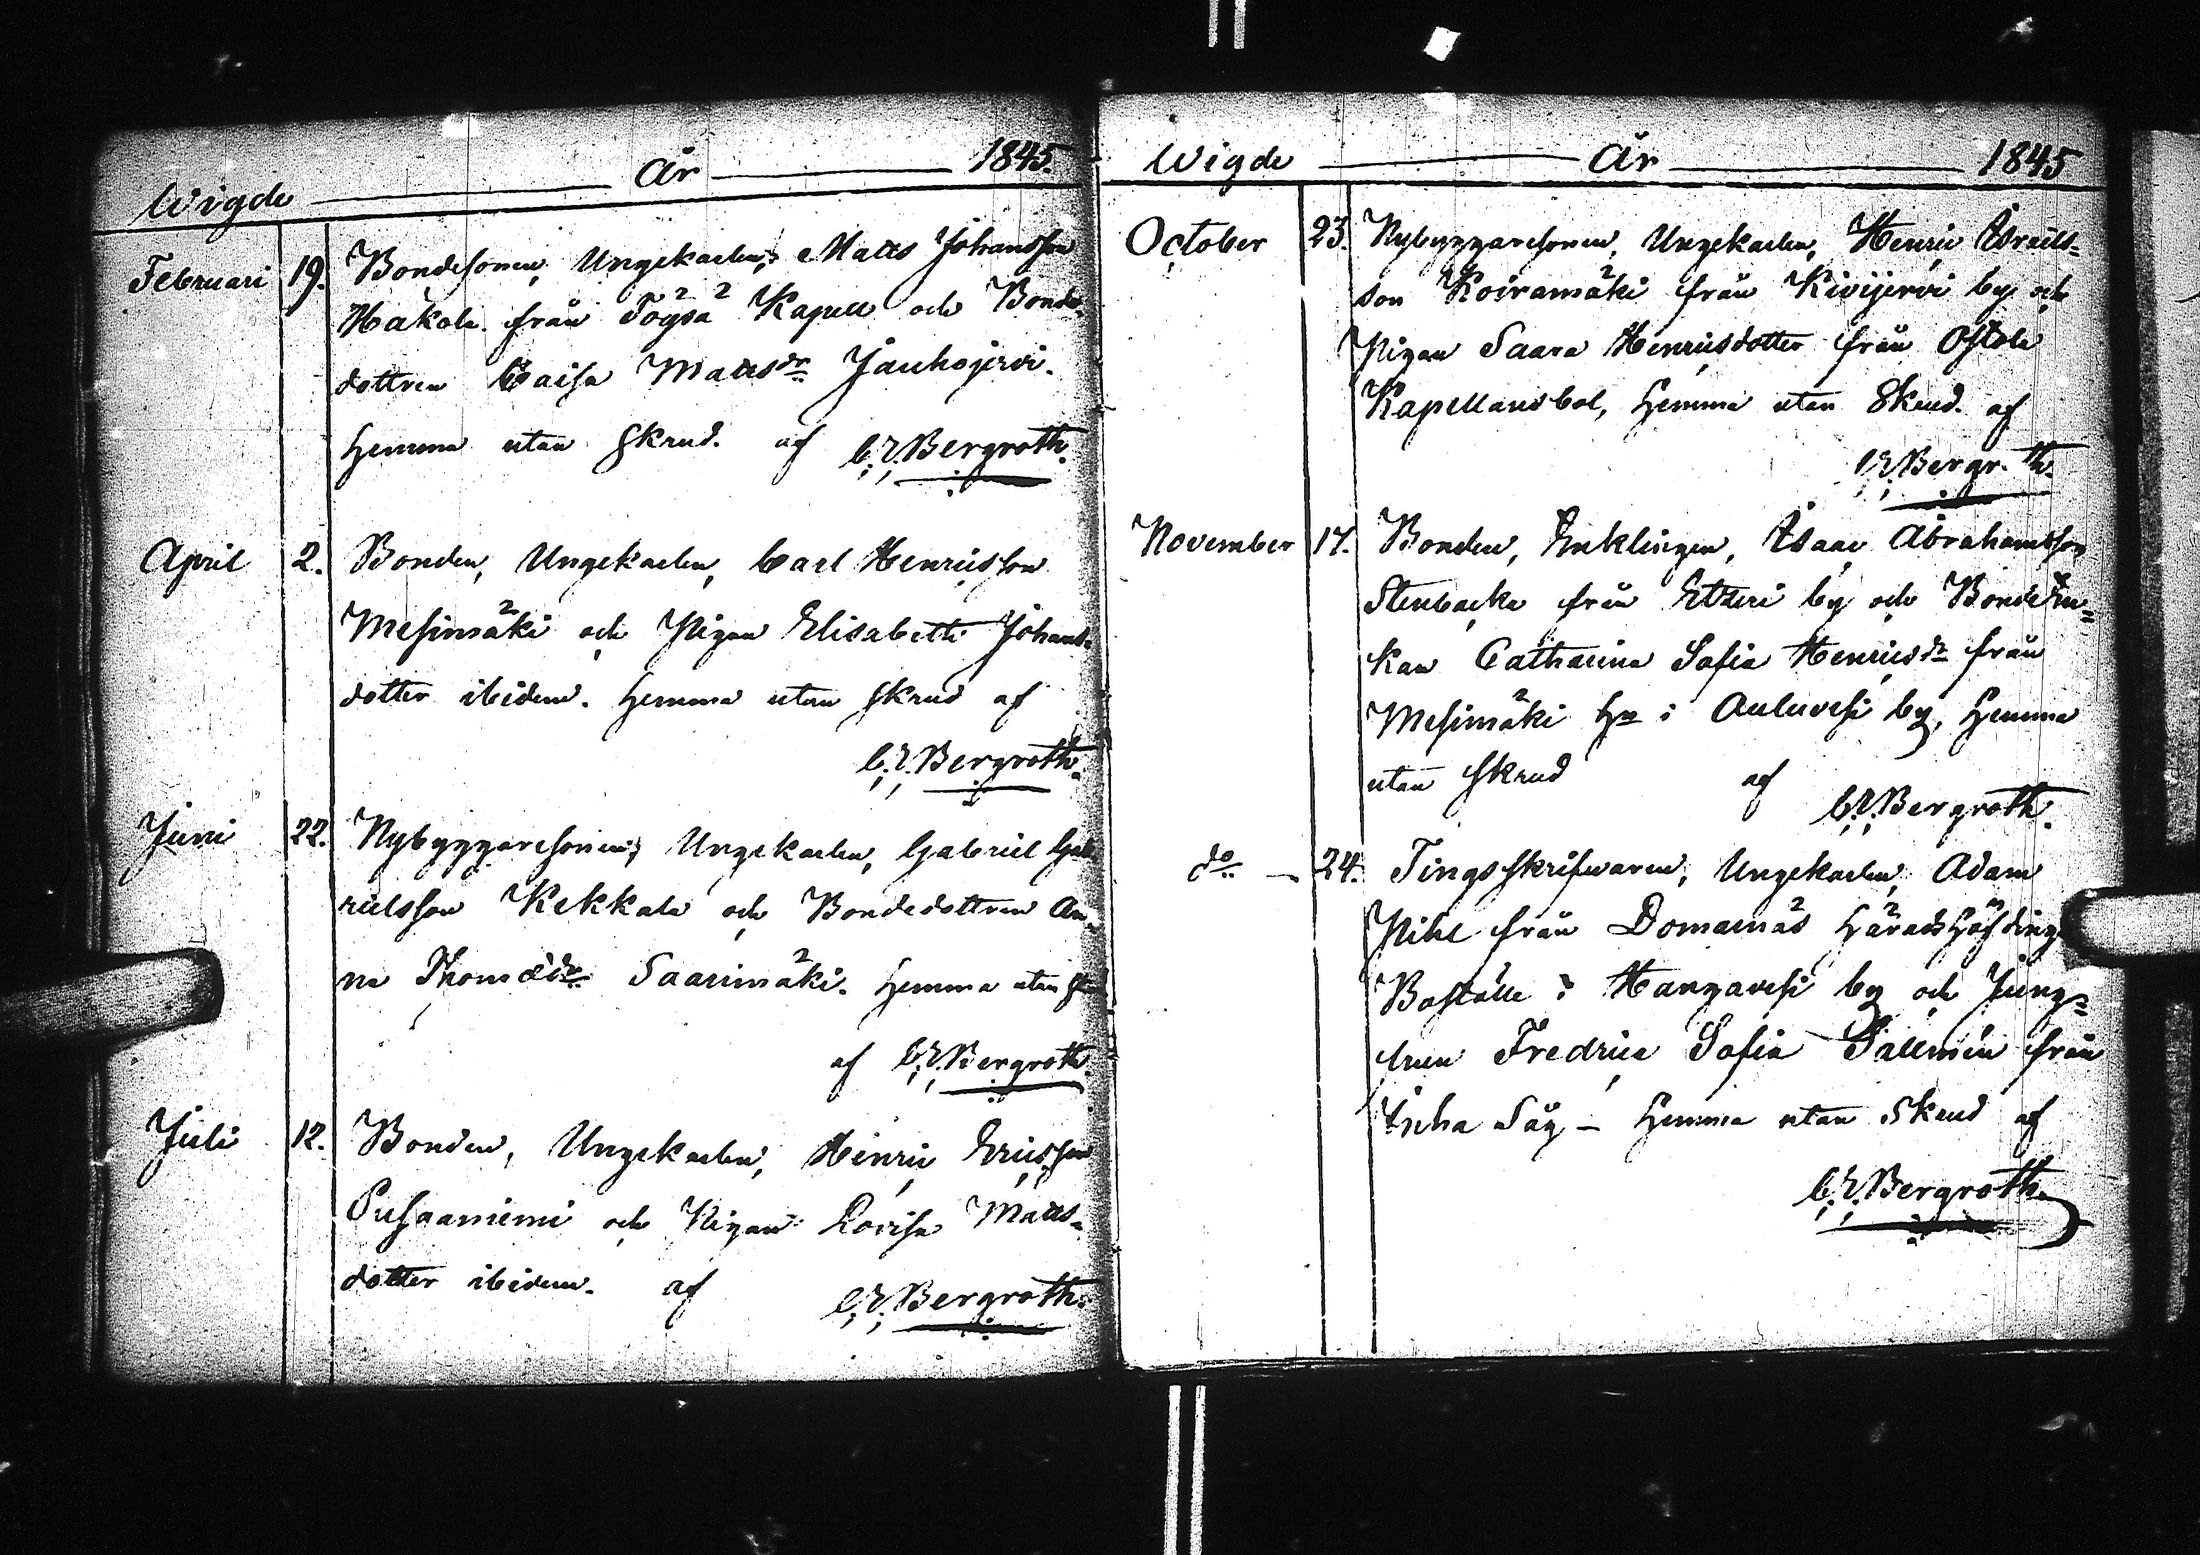 Wigde År 1845.
Februari 19. Bondesonen, Ungekarlen, Matts Johansson
Hakola från Töysä Kapell och Bonde-
dottren Caisa Mattsdr Jauhojervi.
Hemma utan skrud. af C. E. Bergroth.
April 2. Bonden, Ungekarlen, Carl Henricsson
Mesimäki och Pigan Elisabeth Johans-
dotter ibidem. Hemma utan skrud af
C. E. Bergroth.
Juni 22. Nybyggaresonen, Ungekarlen, Gabriel Gab-
rielsson Kekkala och Bondedottren An-
na Thomædr Saarimäki. Hemma utan
af C. E. Bergroth.
Juli 12. Bonden, Ungekarlen, Henric Ericsson
Pusaaniemi och Pigan Lovisa Matts-
dotter ibidem. af C. E. Bergroth.
Wigde År 1845
October 23. Nybyggaresonen, Ungekarlen, Henric Israels-
son Koiramäki från Kivijervi by och
Pigan Saara Henricsdotter från Ostola
Kapellansbol, Hemma utan Skrud. af
C. E. Bergroth.
November 17. Bonden, Enklingen, Isaac Abrahamsson
Stenbacka från Etzeri by och Bonde En-
kan Catharina Sofia Henricsdr från
Mesimäki Hn i Auluvesi by, Hemma
utan skrud af C. E. Bergroth.
do 24. Tingsskrifvaren, Ungekarlen, Adam
Pihl från Domarnäs Häradshöfdinge
Boställe i Hangavesi by och Jung-
frun Fredrica Sofia Sallmén från
Inha Såg - Hemma utan Skrud af
C. E. Bergroth.